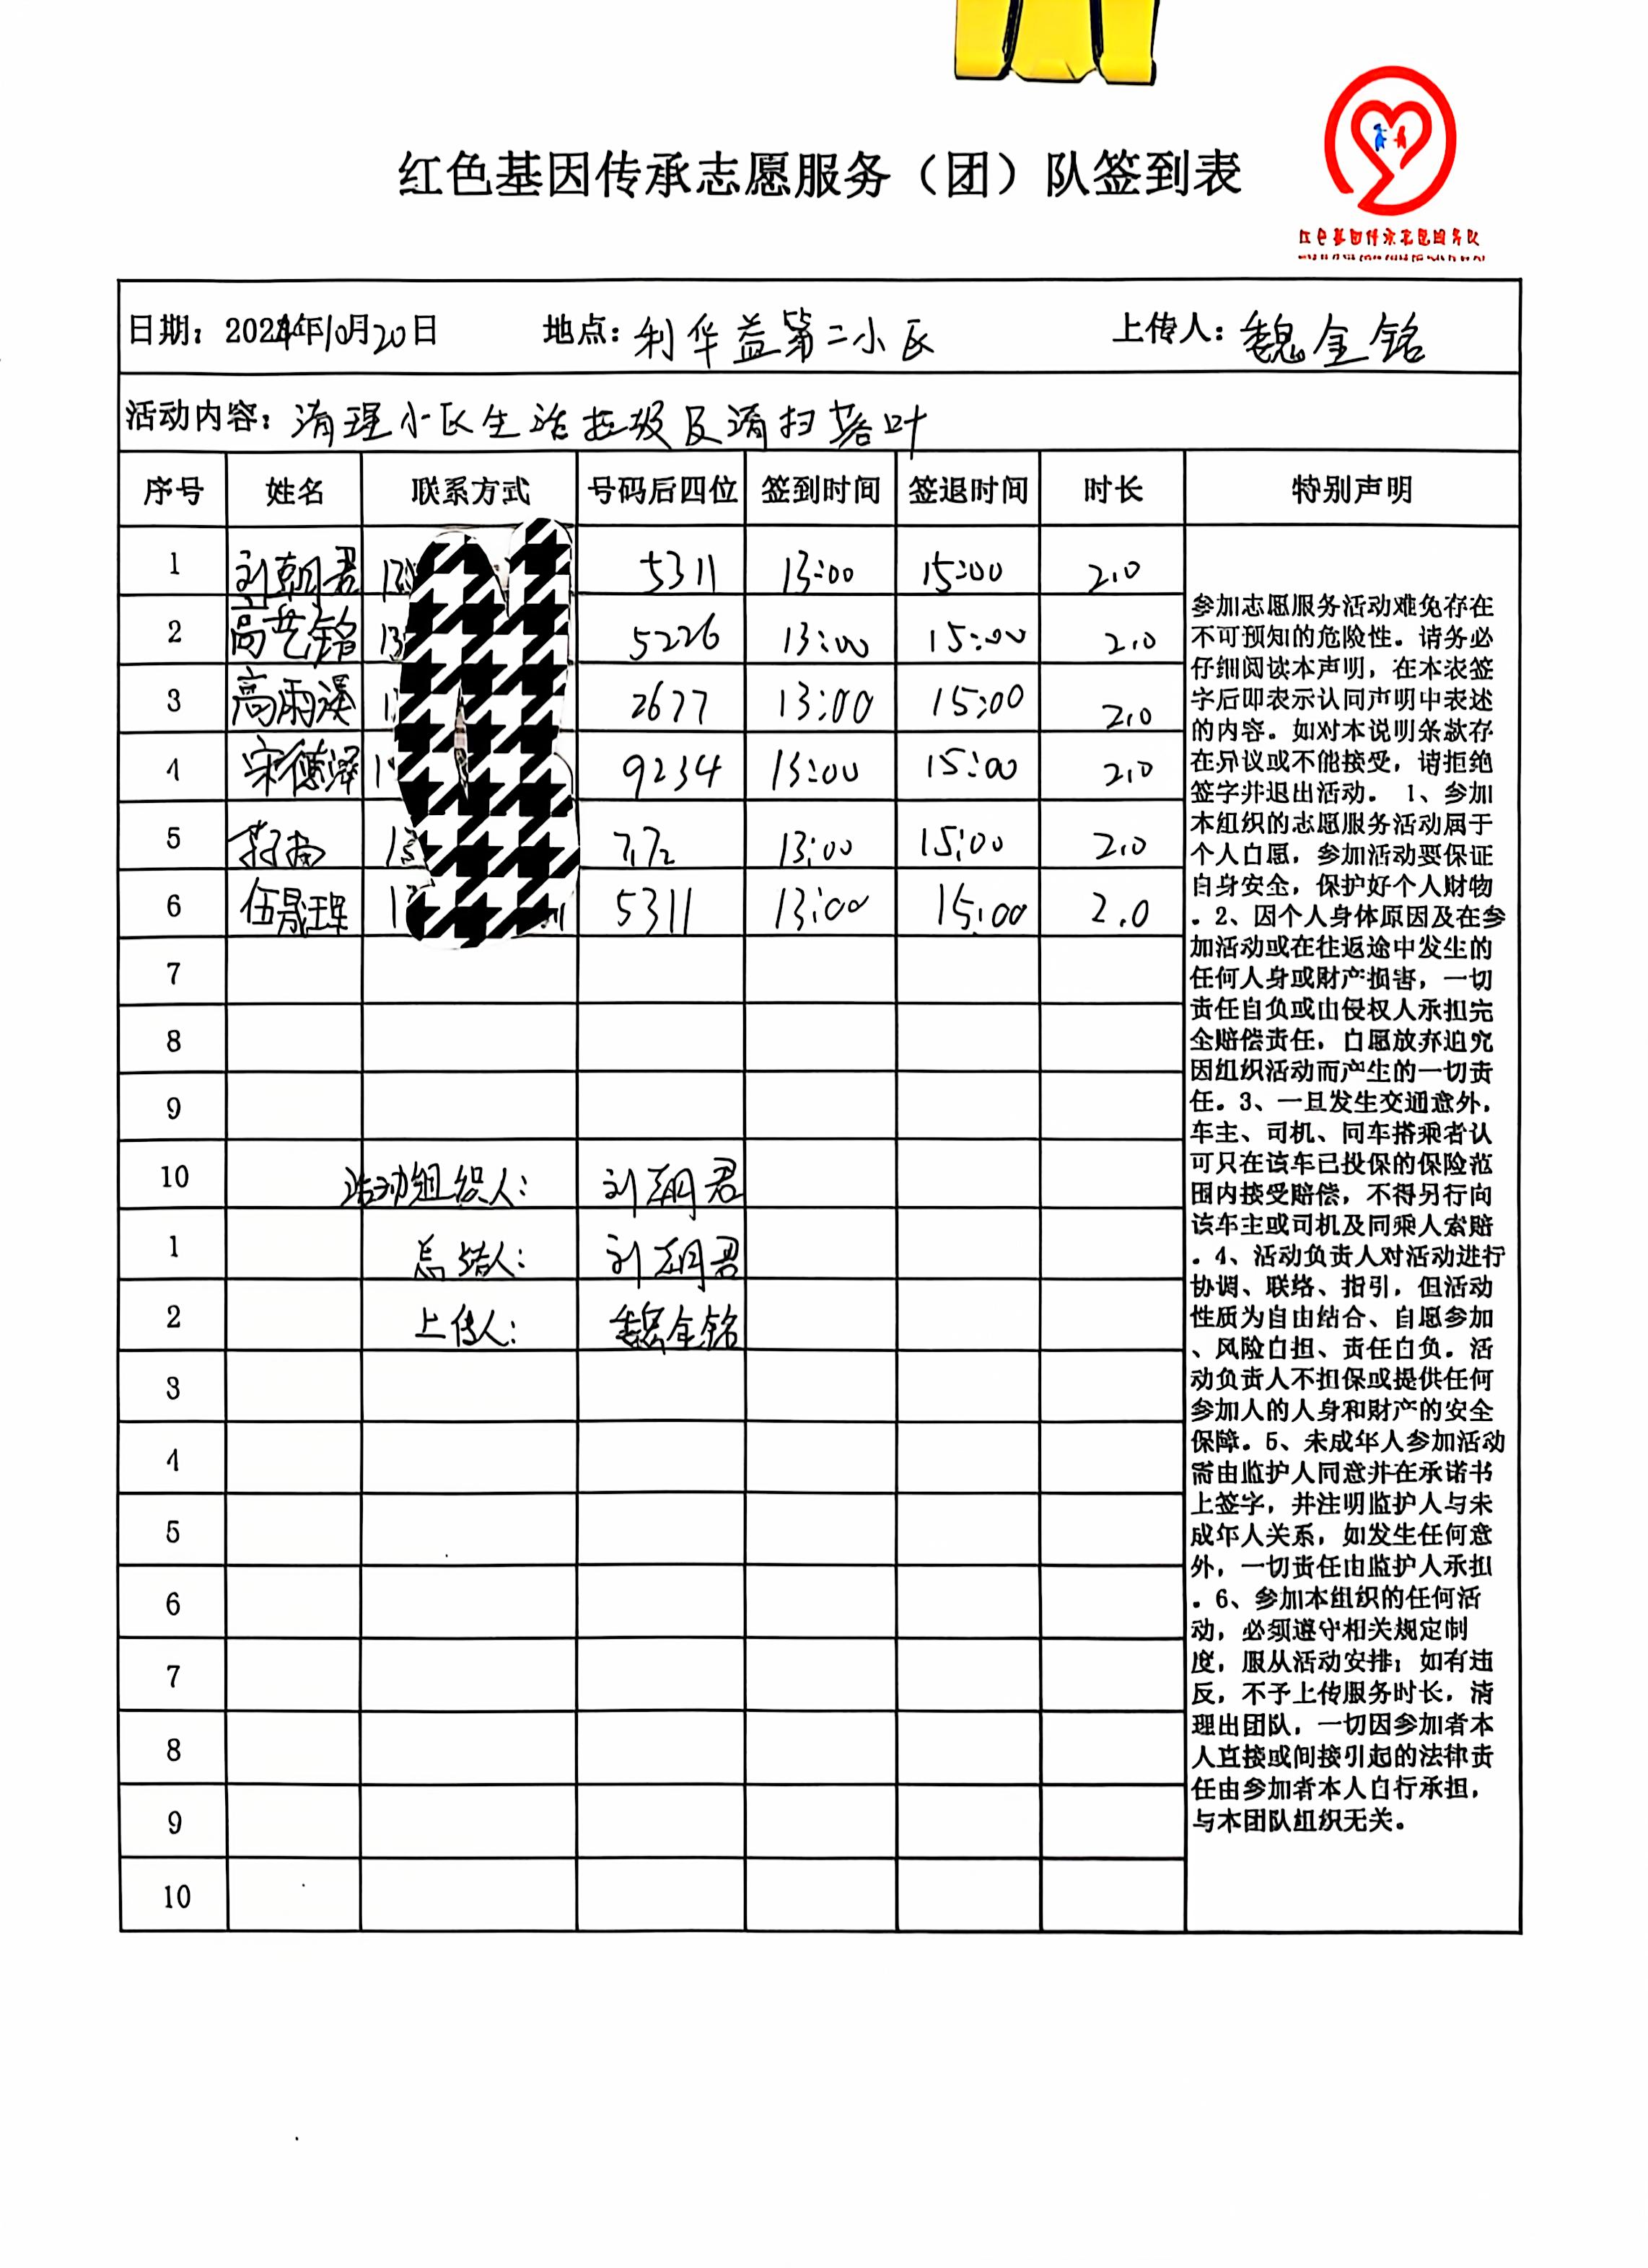 红色基因传承志愿服务（团）队签到表
红色基因传承志愿服务队
日期：2024年10月20日 地点：利华益第二小区 上传人：魏金铭
活动内容：清理小区生活垃圾及清扫落叶
序号 姓名 联系方式 号码后四位 签到时间 签退时间 时长 特别声明
1 刘朝君 5311 13:00 15:00 2.0
2 高艺铭 13 5226 13:00 15:00 2.0
3 高雨溪 2677 13:00 15:00 2.0
4 宋德泽 9234 13:00 15:00 2.0
5 13 13:00 15:00 2.0
6 伍晟珲 5311 13:00 15:00 2.0
7
8
9
10 活动组织人： 刘朝君
1 总结人： 刘朝君
2 上传人： 魏金铭
3
4
5
6
7
8
9
10
参加志愿服务活动难免存在
不可预知的危险性。请务必
仔细阅读本声明，在本表签
字后即表示认同声明中表述
的内容。如对本说明条款存
在异议或不能接受，请拒绝
签字并退出活动。 1、参加
本组织的志愿服务活动属于
个人自愿，参加活动要保证
自身安全，保护好个人财物
。2、因个人身体原因及在参
加活动或在往返途中发生的
任何人身或财产损害，一切
责任自负或由侵权人承担完
全赔偿责任，自愿放弃追究
因组织活动而产生的一切责
任。3、一旦发生交通意外，
车主、司机、同车搭乘者认
可只在该车已投保的保险范
围内接受赔偿，不得另行向
该车主或司机及同乘人索赔
。4、活动负责人对活动进行
协调、联络、指引，但活动
性质为自由结合、自愿参加
、风险自担、责任自负。活
动负责人不担保或提供任何
参加人的人身和财产的安全
保障。5、未成年人参加活动
需由监护人同意并在承诺书
上签字，并注明监护人与未
成年人关系，如发生任何意
外，一切责任由监护人承担
。6、参加本组织的任何活
动，必须遵守相关规定制
度，服从活动安排；如有违
反，不予上传服务时长，清
理出团队，一切因参加者本
人直接或间接引起的法律责
任由参加者本人自行承担，
与本团队组织无关。